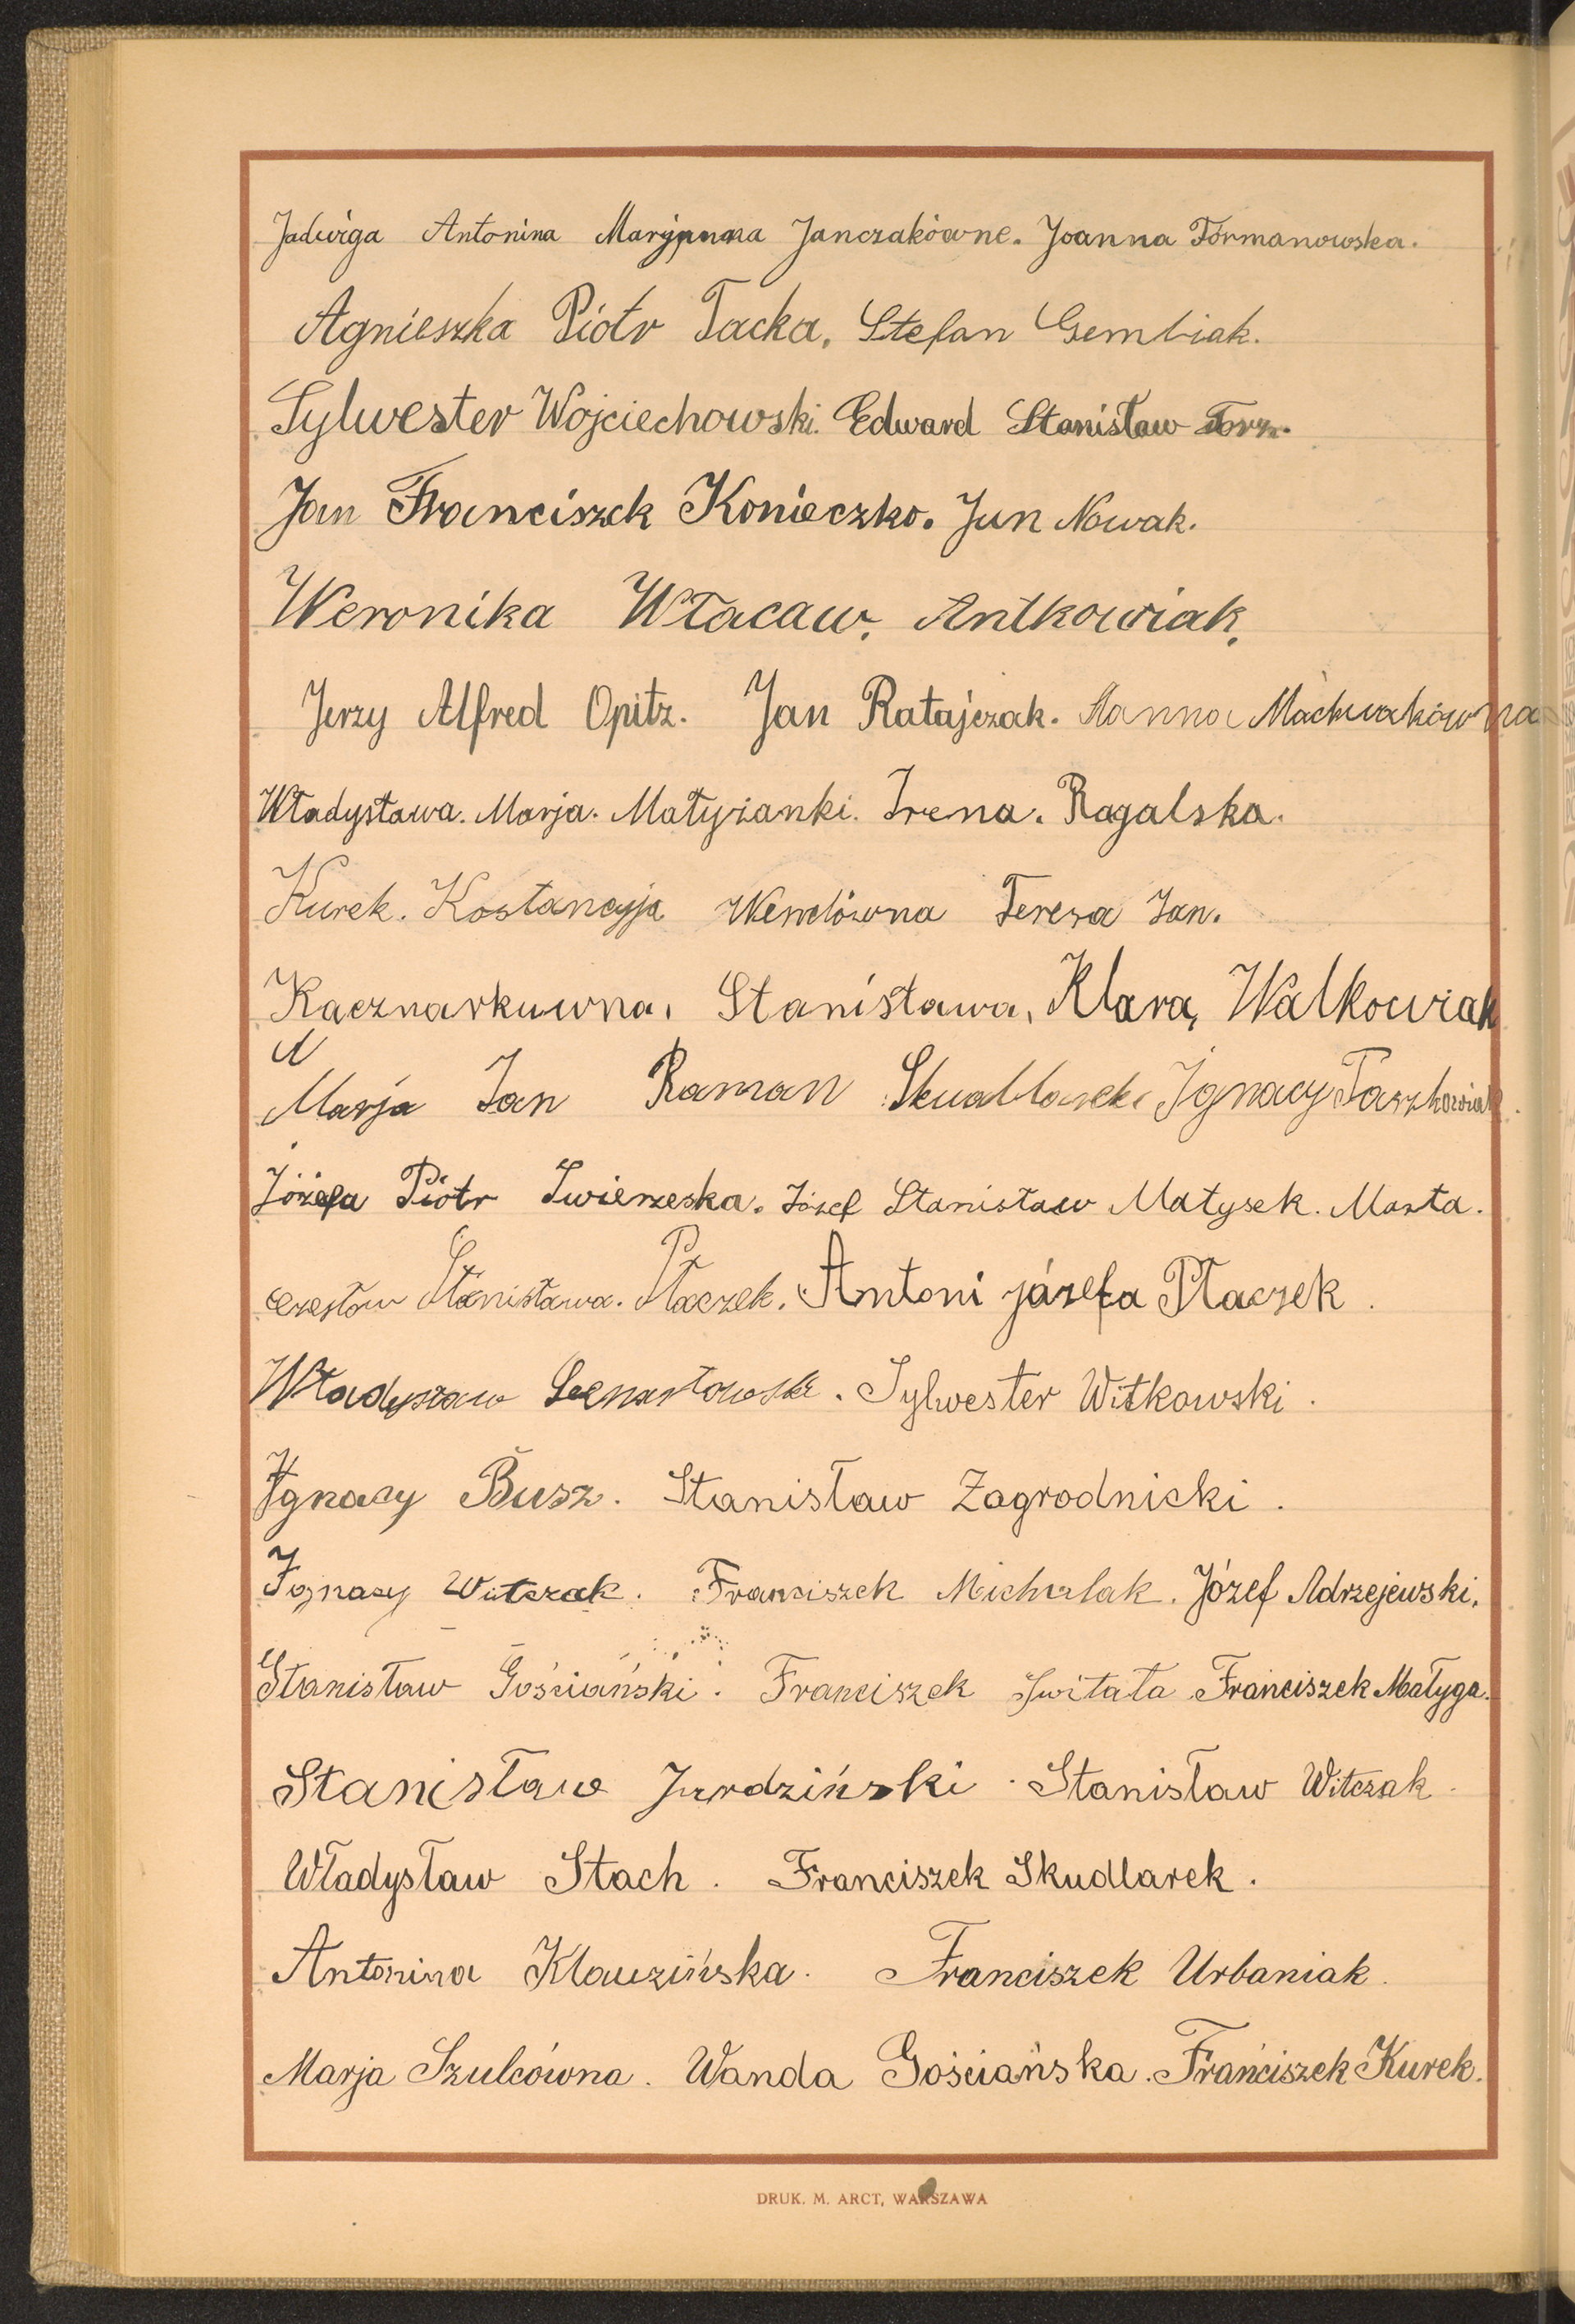 Jadwiga Antonina Maryanna Janczakówne. Joanna Formanowska.
Agnieszka Piotr Tacka. Stefan Gembiak.
Sylwester Wojciechowski. Edward Stanisław Torz.
Jan Franciszek Konieczko. Jan Nowak.
Weronika Włacaw. Antkowiak.
Jerzy Alfred Opitz. Jan Ratajczak. Hanna Maćkwakówna
Władysława. Marja. Matyzanki. Irena. Ragalska.
Kurek. Kostancyja Wendówna Teresa Jan.
Kacznarkuwna, Stanisława, Klara, Walkowiak
Marja Jan Raman Skudlarek Ignacy Taszkowiak.
Józefa Piotr Swierzeska. Józef Stanisław Matysek. Marta.
Czesław Stanisława. Płaczek. Antoni józefa Płaczek.
Władyszaw Lenartowski. Sylwester Witkowski.
Ignacy Busz. Stanisław Zagrodnicki.
Ignacy Witczak. Franciszek Michalak. Józef Adrzejewski.
Stanisław Gościański. Franciszek Switała Franciszek Małyga.
Stanisław Jurdziński. Stanisław Witczak.
Władysław Stach. Franciszek Skudlarek.
Antonina Klauzińska. Franciszek Urbaniak.
Marja Szulcówna. Wanda Gościańska. Franciszek Kurek.
DRUK. M. ARCT, WARSZAWA